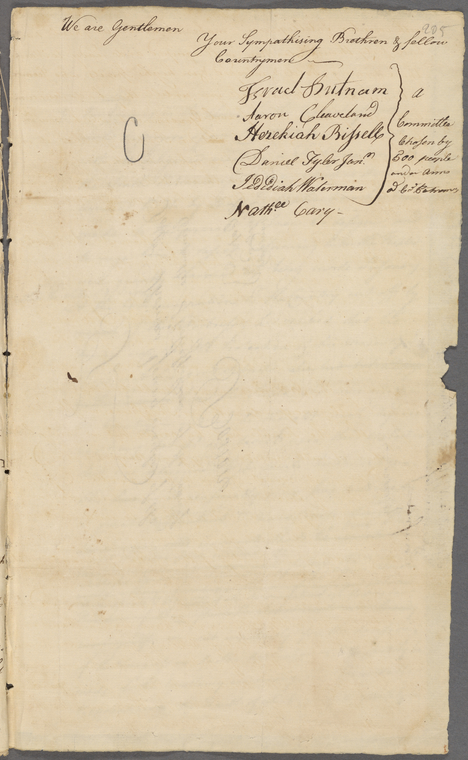 205
We are Gentlemen
Your Sympathising Brethren & fellow
Countrymen
Israel Putnam
Aaron Cleaveland
Hezekiah Bissell
Daniel Tyler Junr
Jedediah Waterman
Nathll Cary
a
Committee
Chosen by
500 people
under Arms
C